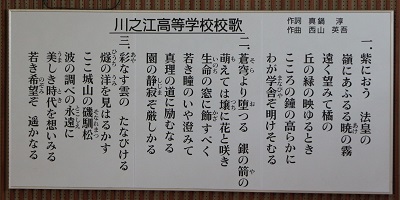 川之江高等学校校歌
作詞 真鍋 淳
作曲 西山 英吾
一、紫におう 法皇の
嶺にあふるる暁の霧
遠く望みて橘の
丘の緑の映ゆるとき
こころの鐘の高らかに
わが学舎ぞ明けそむる
二、蒼穹より堕つる 銀の箭の
萌えては壌に花と咲き
生命の窓に飾すべく
若き瞳のいや澄みて
真理の道に励むなる
園の静寂ぞ厳しかる
三、彩なす雲の たなびける
燧の洋を見はるかす
ここ城山の磯馴松
波の調べの永遠に
美しき時代を想いみる
若き希望ぞ 遥かなる